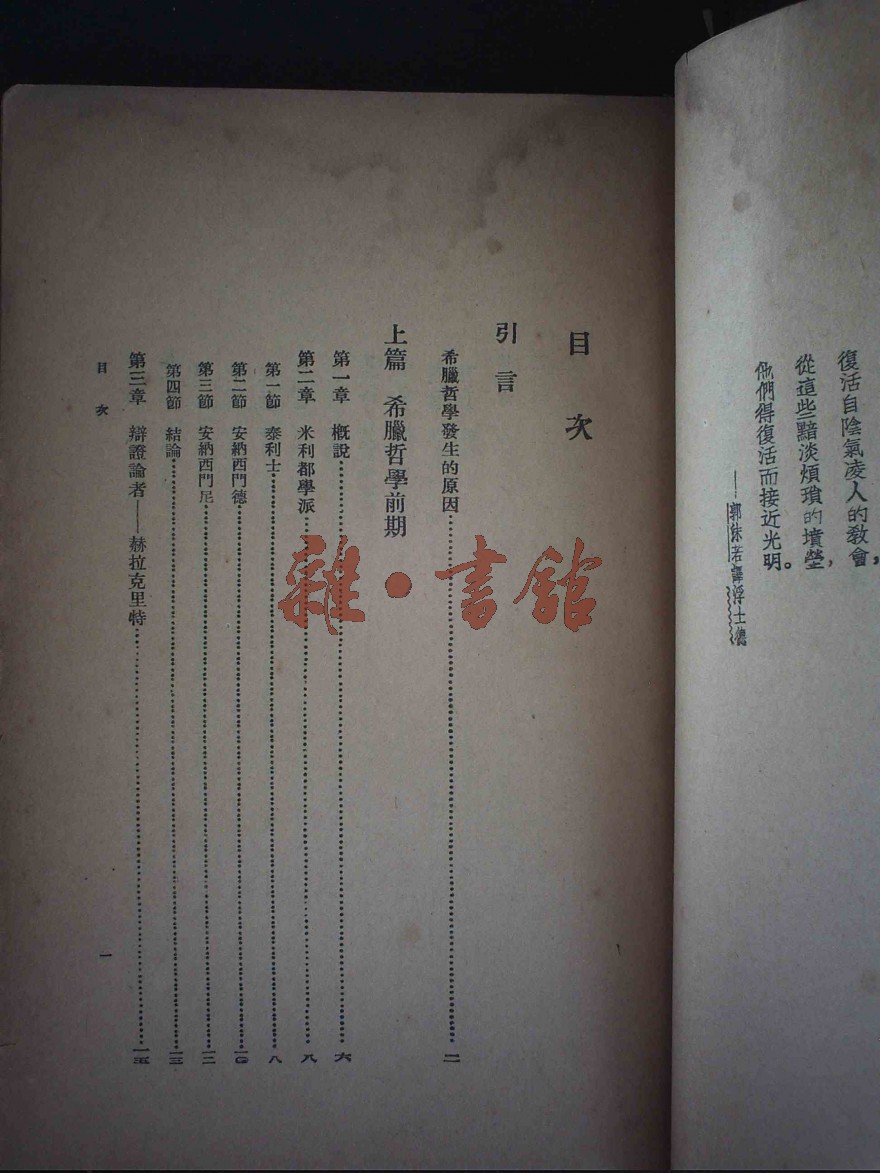 復活自陰氣凌人的教會，
從這些黯淡煩瑣的墳塋，
他們得復活而接近光明。
——郭沫若譯浮士德
目次
引言
希臘哲學發生的原因……二
上篇 希臘哲學前期
第一章 概說……六
第二章 米利都學派……八
第一節 泰利士……八
第二節 安納西門德……一〇
第三節 安納西門尼……一二
第四節 結論……一三
第三章 辯證論者——赫拉克里特……一五
目次
一
雜·書館